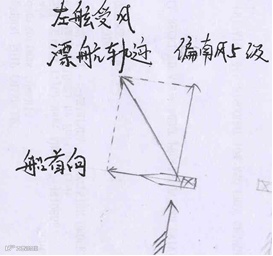 左舷受风
漂航轨迹 偏南风5级
船首向